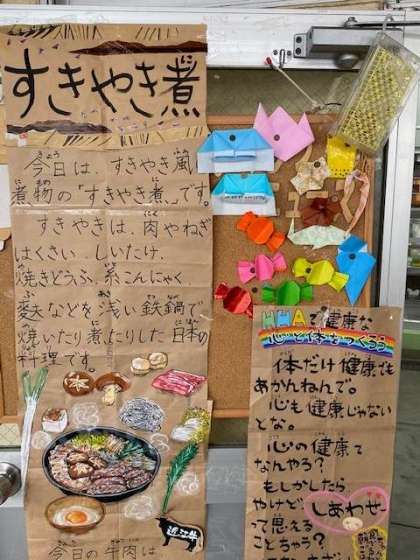 すきやき煮
今日は、すきやき風
煮物の「すきやき煮」です。
すきやきは、肉やねぎ
はくさい、しいたけ、
焼きどうふ、糸こんにゃく、
麩などを浅い鉄鍋で
焼いたり煮たりした日本の
料理です。
近江牛
今日の牛肉は
HHAで健康な
心と体をつくろう
体だけ健康でも
あかんねんで。
心も健康じゃない
とな。
心の健康て
なんやろ？
もしかしたら
やけど
しあわせ
って思える
ことちゃう？